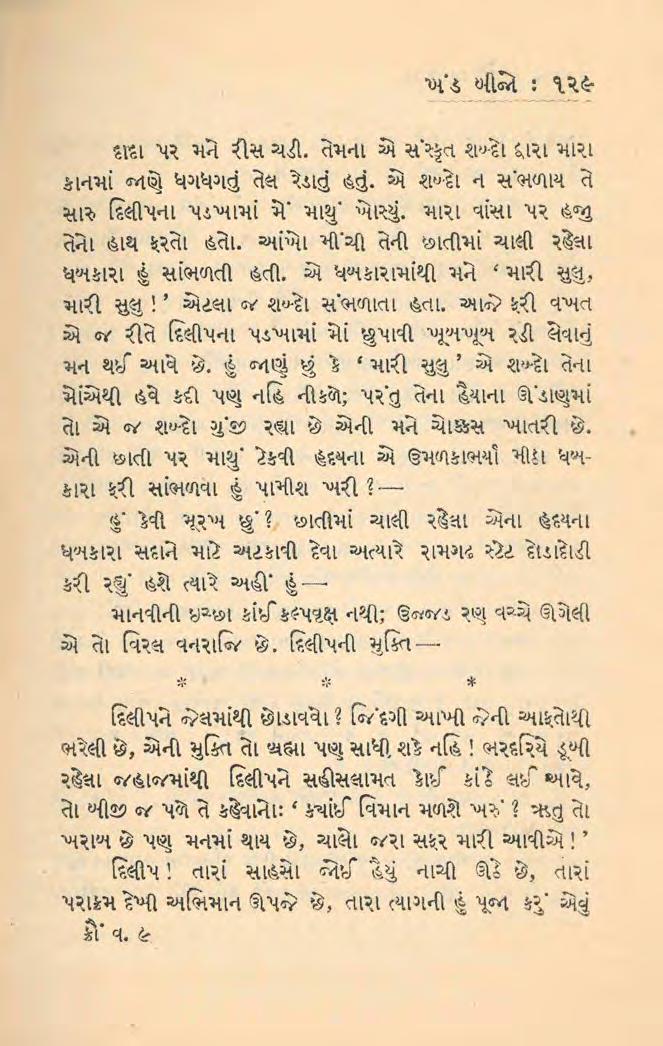 ખંડ બીજો : ૧૨૯
દાદા પર મને રીસ ચડી. તેમના એ સંસ્કૃત શબ્દો દ્વારા મારા
કાનમાં જાણે ધગધગતું તેલ રેડાતું હતું. એ શબ્દો ન સંભળાય તે
સારુ દિલીપના પડખામાં મેં માથું ખોસ્યું. મારા વાંસા પર હજુ
તેનો હાથ ફરતો હતો. આંખો મીંચી તેની છાતીમાં ચાલી રહેલા
ધબકારા હું સાંભળતી હતી. એ ધબકારામાંથી મને ‘ મારી સુલુ,
મારી સુલુ ! ’ એટલા જ શબ્દો સંભળાતા હતા. આજે ફરી વખત
એ જ રીતે દિલીપના પડખામાં મોં છુપાવી ખૂબખૂબ રડી લેવાનું
મન થઈ આવે છે. હું જાણું છું કે ‘ મારી સુલુ ’ એ શબ્દો તેના
મોંએથી હવે કદી પણ નહિ નીકળે; પરંતુ તેના હૈયાના ઊંડાણમાં
તો એ જ શબ્દો ગુંજી રહ્યા છે એની મને ચોક્કસ ખાતરી છે.
એની છાતી પર માથું ટેકવી હૃદયના એ ઉમળકાભર્યા મીઠા ધબ-
કારા ફરી સાંભળવા હું પામીશ ખરી ?—
હું કેવી મૂરખ છું ? છાતીમાં ચાલી રહેલા એના હૃદયના
ધબકારા સદાને માટે અટકાવી દેવા અત્યારે રામગઢ સ્ટેટ દોડાદોડી
કરી રહ્યું હશે ત્યારે અહીં હું—
માનવીની ઇચ્છા કાંઈ કલ્પવૃક્ષ નથી; ઉજ્જડ રણ વચ્ચે ઊગેલી
એ તો વિરલ વનરાજિ છે. દિલીપની મુક્તિ—
* * *
દિલીપને જેલમાંથી છોડાવવો ? જિંદગી આખી જેની આફતોથી
ભરેલી છે, એની મુક્તિ તો બ્રહ્મા પણ સાધી શકે નહિ ! ભરદરિયે ડૂબી
રહેલા જહાજમાંથી દિલીપને સહીસલામત કોઈ કાંઠે લઈ આવે,
તો બીજી જ પળે તે કહેવાનોઃ ‘ ક્યાંઈ વિમાન મળશે ખરું ? ઋતુ તો
ખરાબ છે પણ મનમાં થાય છે, ચાલો જરા સફર મારી આવીએ ! ’
દિલીપ ! તારાં સાહસો જોઈ હૈયું નાચી ઊઠે છે, તારાં
પરાક્રમ દેખી અભિમાન ઊપજે છે, તારા ત્યાગની હું પૂજા કરું એવું
ક્રૌં વ. ૯